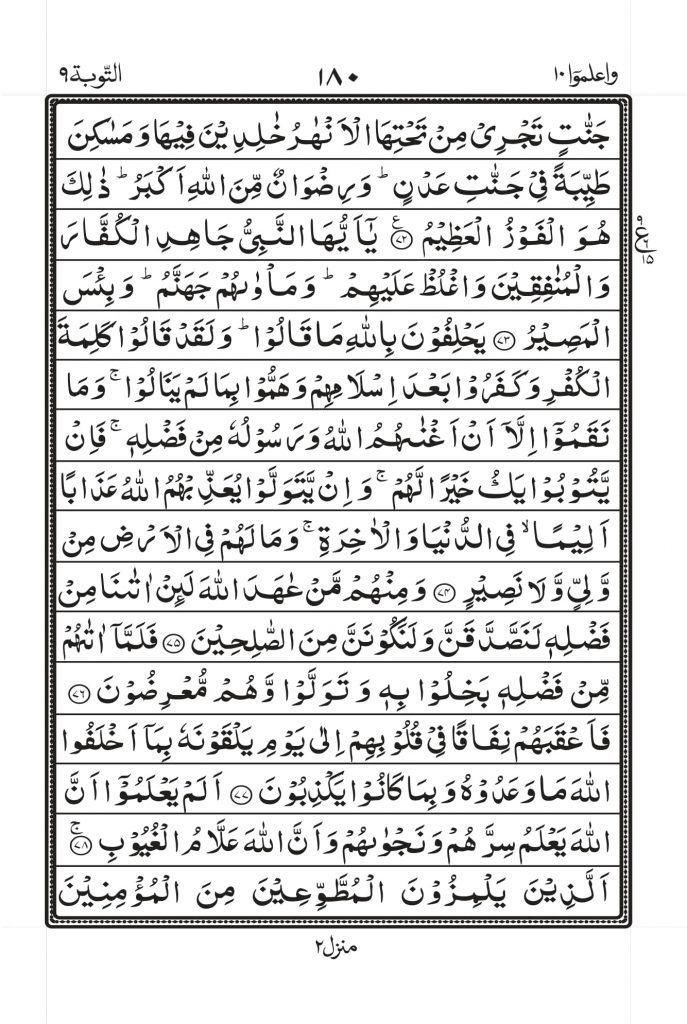 واعلموۤا ١٠ ١٨٠ التّوبة ٩
جَنّٰتٍ تَجْرِىْ مِنْ تَحْتِهَا الْاَنْهٰرُ خٰلِدِيْنَ فِيْهَا وَ مَسٰكِنَ
طَيِّبَةً فِىْ جَنّٰتِ عَدْنٍ ؕ وَ رِضْوَانٌ مِّنَ اللهِ اَكْبَرُ ؕ ذٰلِكَ
هُوَ الْفَوْزُ الْعَظِيْمُ ۧ ﴿٧٢﴾ يٰۤاَيُّهَا النَّبِىُّ جَاهِدِ الْكُفَّارَ
ع ٩ ٦ ١٥
وَ الْمُنٰفِقِيْنَ وَ اغْلُظْ عَلَيْهِمْ ؕ وَ مَاْوٰىهُمْ جَهَنَّمُ ؕ وَ بِئْسَ
الْمَصِيْرُ ﴿٧٣﴾ يَحْلِفُوْنَ بِاللهِ مَا قَالُوْا ؕ وَ لَقَدْ قَالُوْا كَلِمَةَ
الْكُفْرِ وَ كَفَرُوْا بَعْدَ اِسْلَامِهِمْ وَ هَمُّوْا بِمَا لَمْ يَنَالُوْا ۚ وَ مَا
نَقَمُوْۤا اِلَّاۤ اَنْ اَغْنٰىهُمُ اللهُ وَ رَسُوْلُهٗ مِنْ فَضْلِهٖ ۚ فَاِنْ
يَّتُوْبُوْا يَكُ خَيْرًا لَّهُمْ ۚ وَ اِنْ يَّتَوَلَّوْا يُعَذِّبْهُمُ اللهُ عَذَابًا
اَلِيْمًا ۙ فِى الدُّنْيَا وَ الْاٰخِرَةِ ۚ وَ مَا لَهُمْ فِى الْاَرْضِ مِنْ
وَّلِىٍّ وَّ لَا نَصِيْرٍ ﴿٧٤﴾ وَ مِنْهُمْ مَّنْ عٰهَدَ اللهَ لَئِنْ اٰتٰىنَا مِنْ
فَضْلِهٖ لَنَصَّدَّقَنَّ وَ لَنَكُوْنَنَّ مِنَ الصّٰلِحِيْنَ ﴿٧٥﴾ فَلَمَّاۤ اٰتٰىهُمْ
مِّنْ فَضْلِهٖ بَخِلُوْا بِهٖ وَ تَوَلَّوْا وَّ هُمْ مُّعْرِضُوْنَ ﴿٧٦﴾
فَاَعْقَبَهُمْ نِفَاقًا فِىْ قُلُوْبِهِمْ اِلٰى يَوْمِ يَلْقَوْنَهٗ بِمَاۤ اَخْلَفُوا
اللهَ مَا وَعَدُوْهُ وَ بِمَا كَانُوْا يَكْذِبُوْنَ ﴿٧٧﴾ اَلَمْ يَعْلَمُوْۤا اَنَّ
اللهَ يَعْلَمُ سِرَّهُمْ وَ نَجْوٰىهُمْ وَ اَنَّ اللهَ عَلَّامُ الْغُيُوْبِ ۚ ﴿٧٨﴾
اَلَّذِيْنَ يَلْمِزُوْنَ الْمُطَّوِّعِيْنَ مِنَ الْمُؤْمِنِيْنَ
منزل ٢